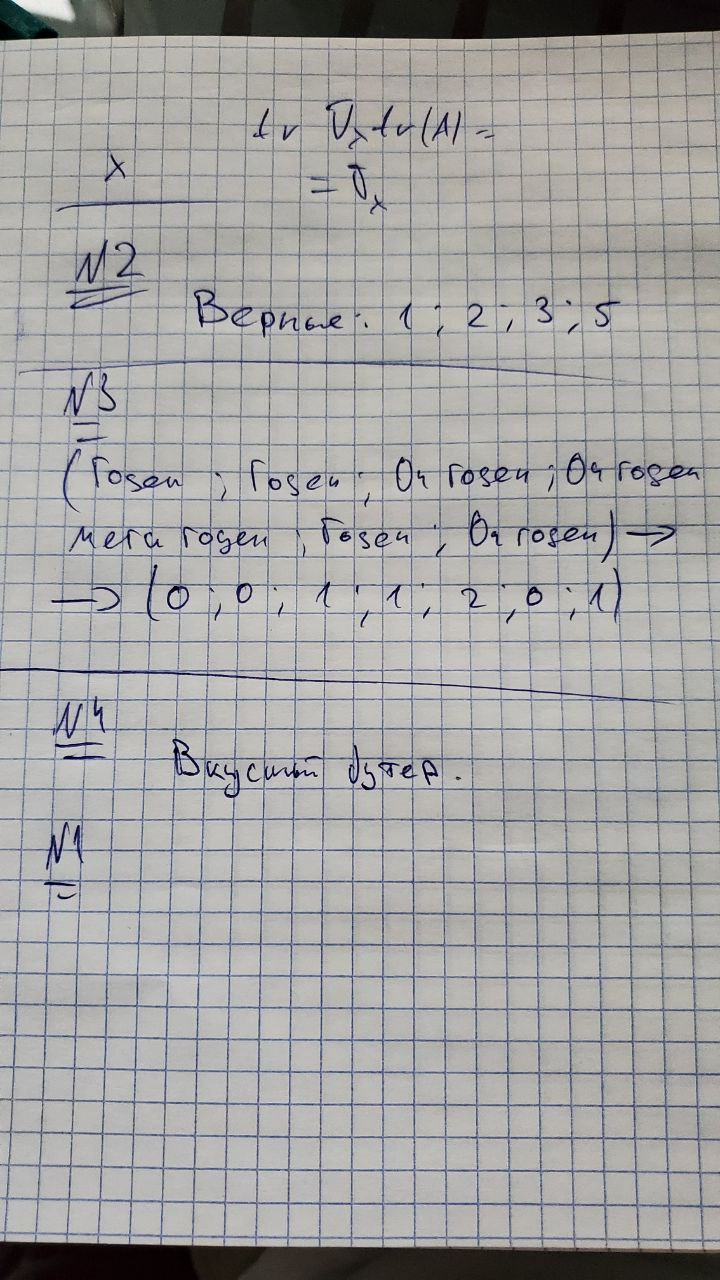 tr ∇ₓ tr(A) =
x
= ∇ₓ
N2
Верные: 1; 2; 3; 5
N3
(Годен; Годен; Оч годен; Оч годен
мега годен; Годен; Оч годен) →
→ (0; 0; 1; 1; 2; 0; 1)
N4
Вкусный бутер.
N1